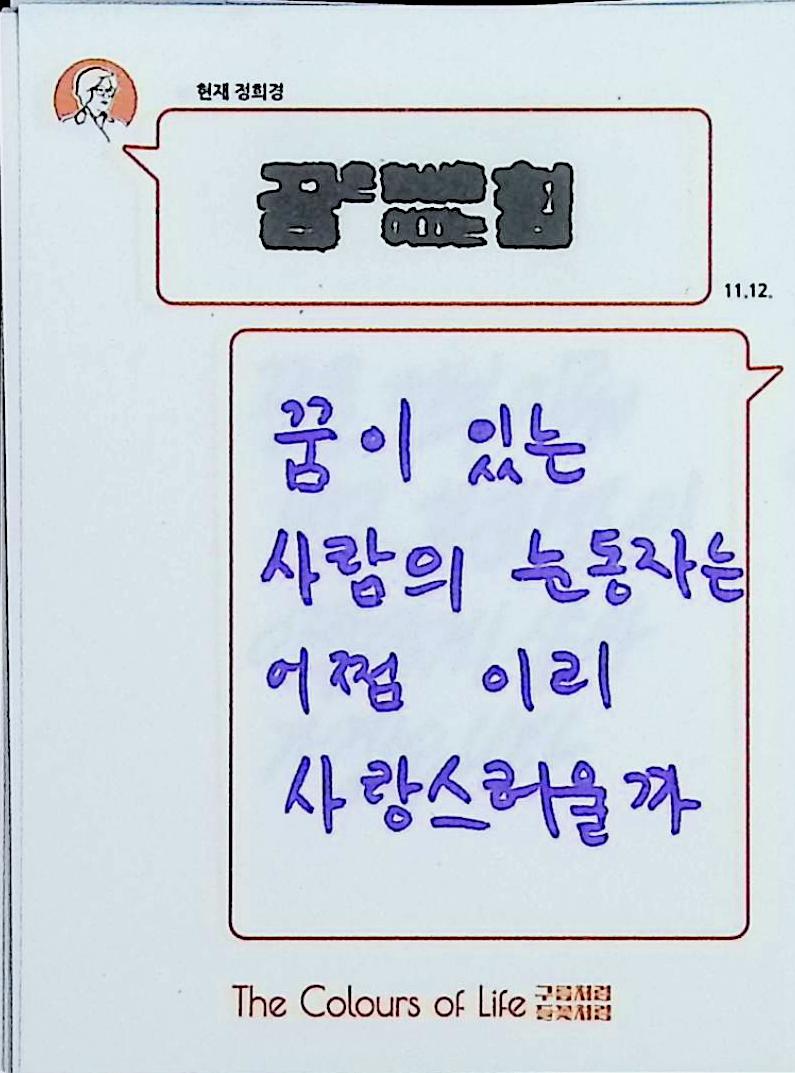 현재 정희경
11.12.
꿈이 있는
사람의 눈동자는
어쩜 이리
사랑스러울까
The Colours of Life 구름처럼
들꽃처럼